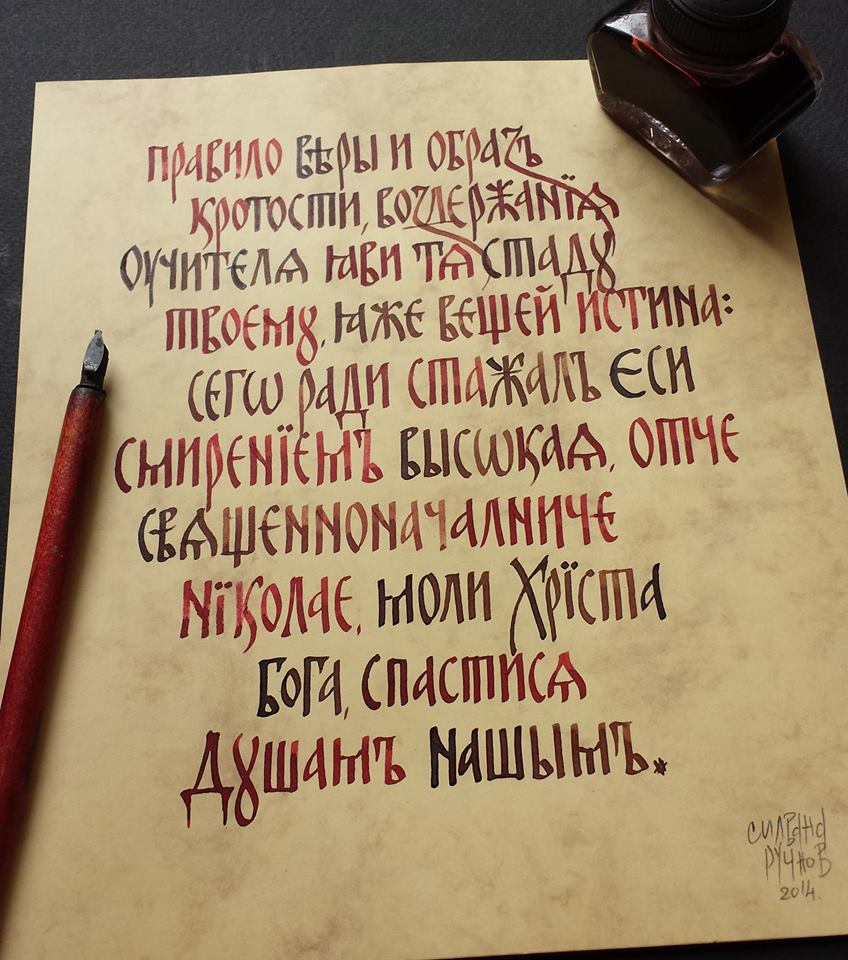 правило вѣры и образъ
кротости, воздержанїѧ
оучителѧ ꙗви тѧ стаду
твоемꙋ, ꙗже вещей истина:
сегѡ ради стажалъ єси
смиренїемъ высѡкаѧ, отче
свѧщенноначалниче
нїколае, моли Хрїста
бога, спастисѧ
дꙋшамъ нашымъ.
2014.